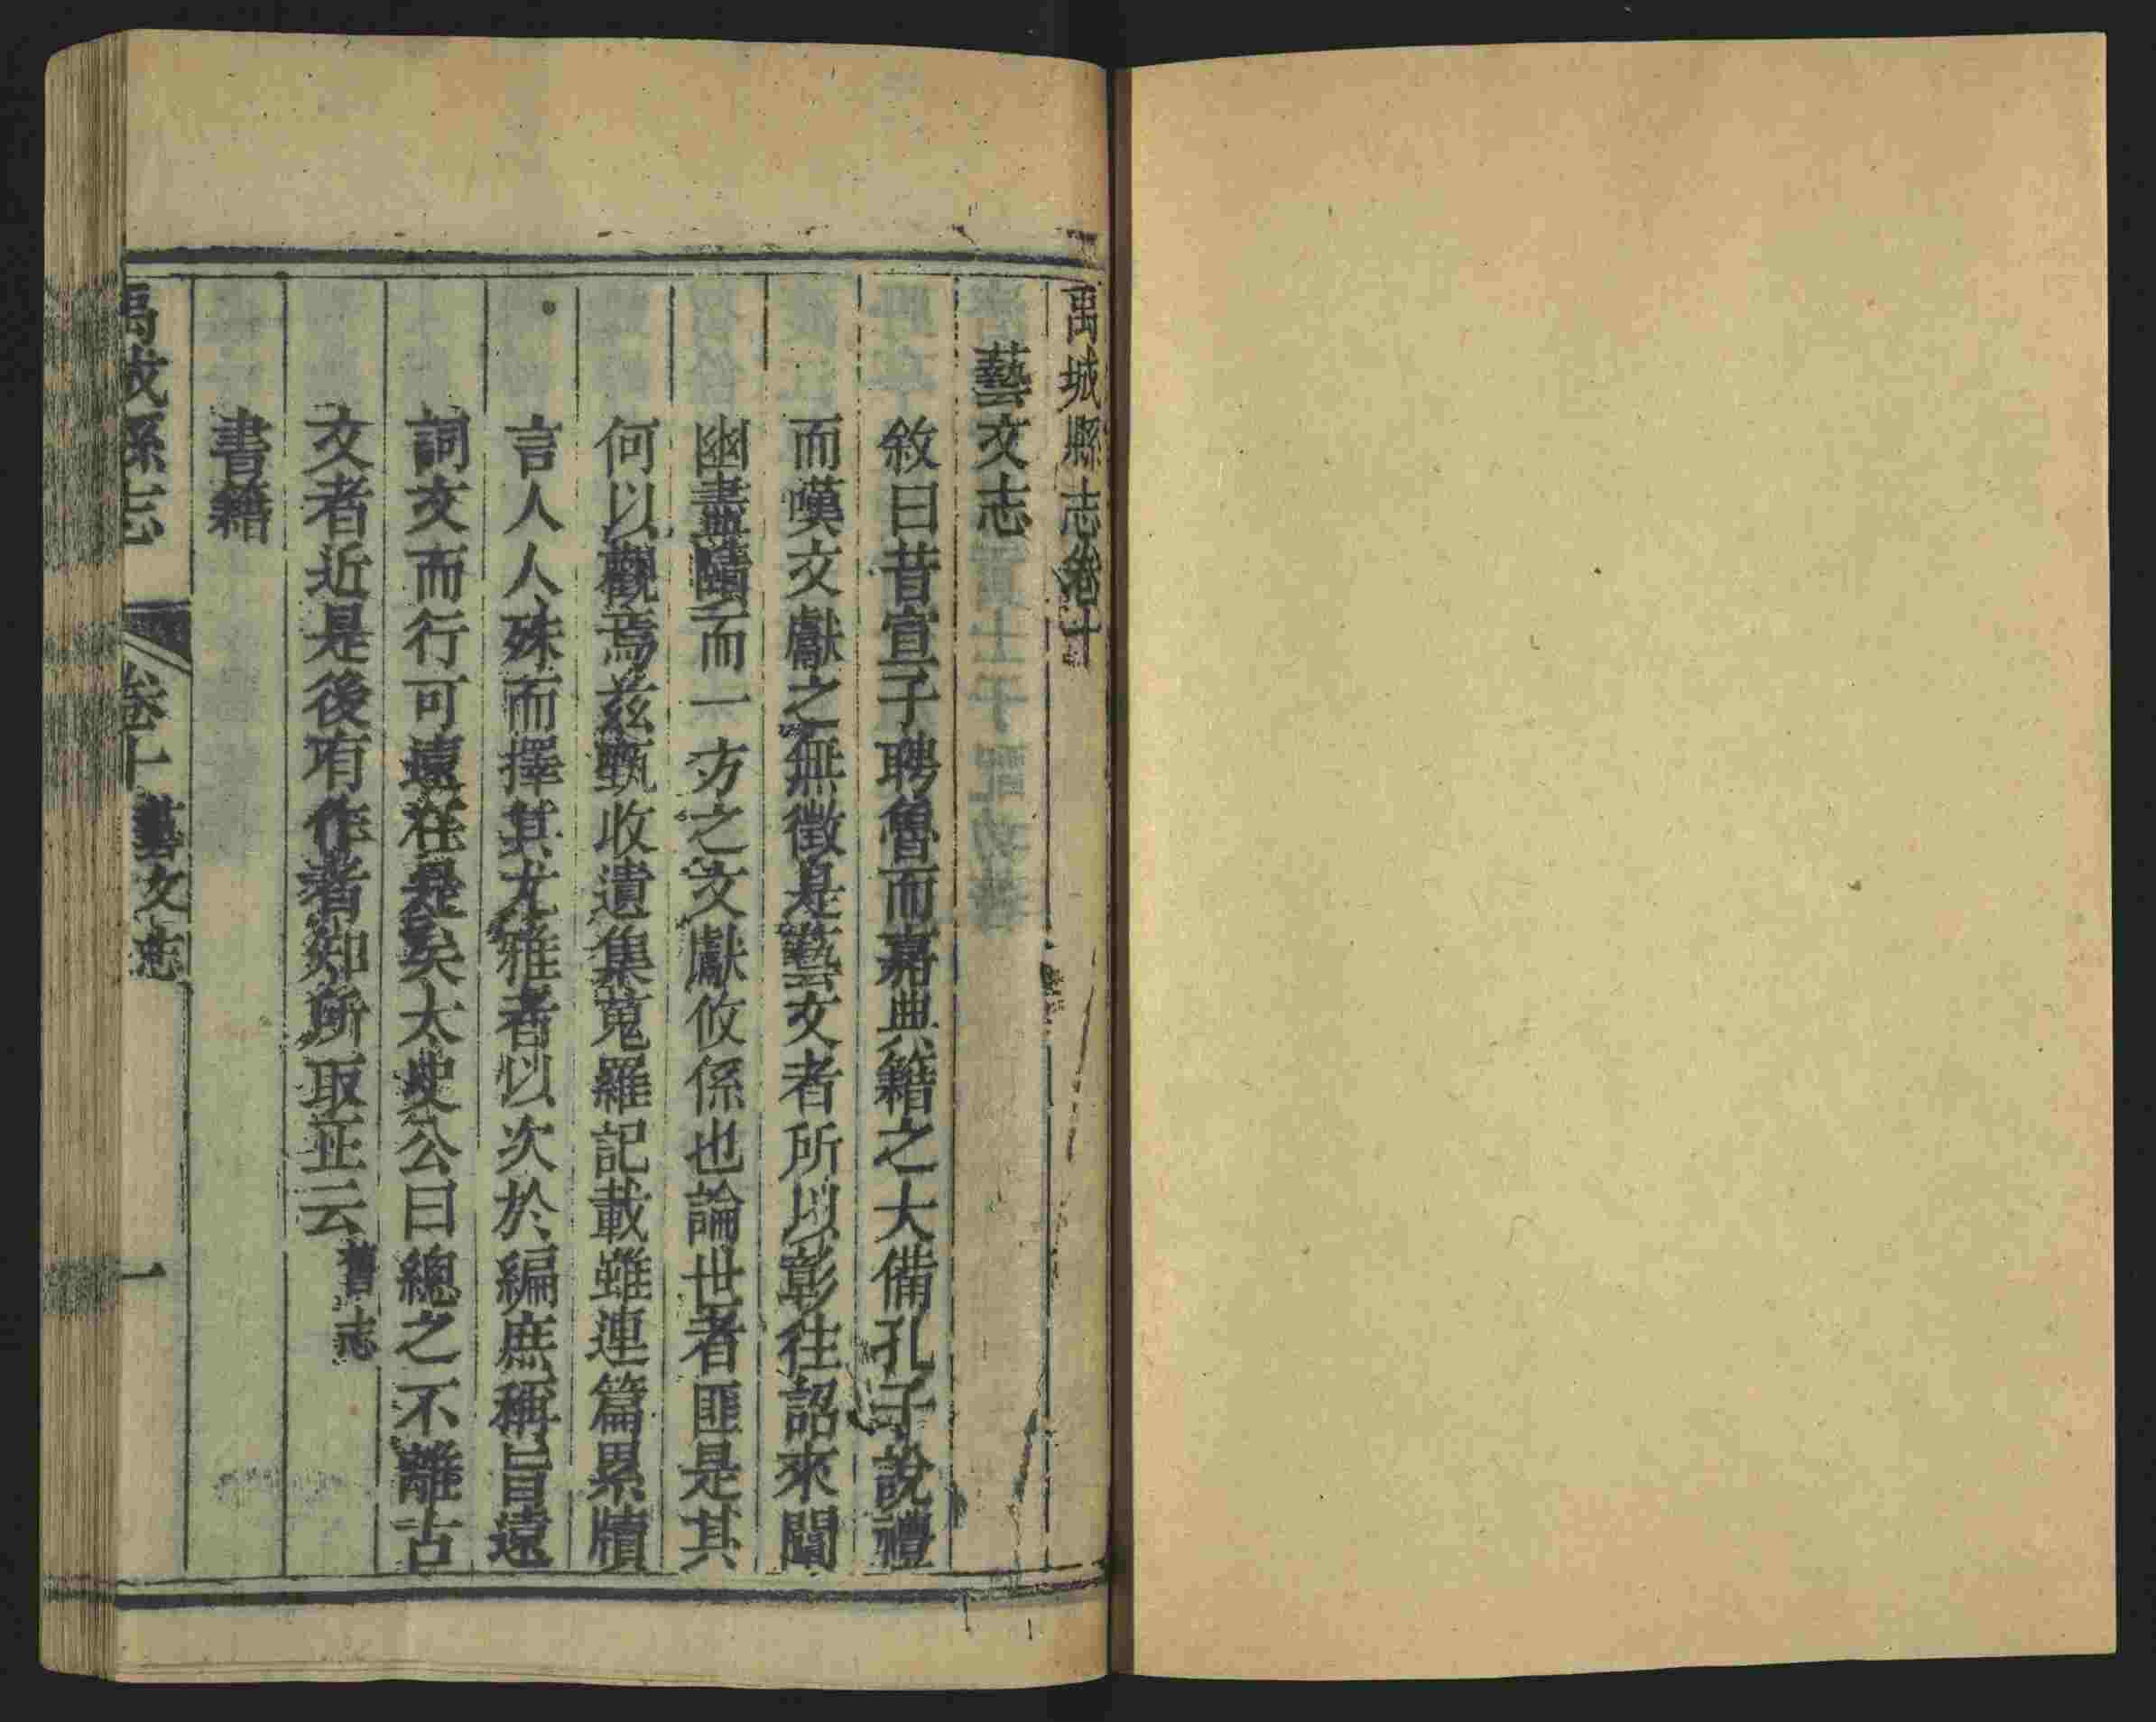 禹城縣志卷十
藝文志
敘曰昔宣子聘魯而嘉典籍之大備孔子說禮
而嘆文獻之無徵是藝文者所以彰往詔來闡
幽盡賾而一方之文獻攸係也論世者匪是其
何以觀焉茲甄收遺集蒐羅記載雖連篇累牘
言人人殊而擇其尤雅者以次於編庶稱旨遠
詞文而行可遠在是矣太史公曰總之不離古
文者近是後有作者知所取正云舊志
書籍
禹城縣志 卷十 藝文志 一